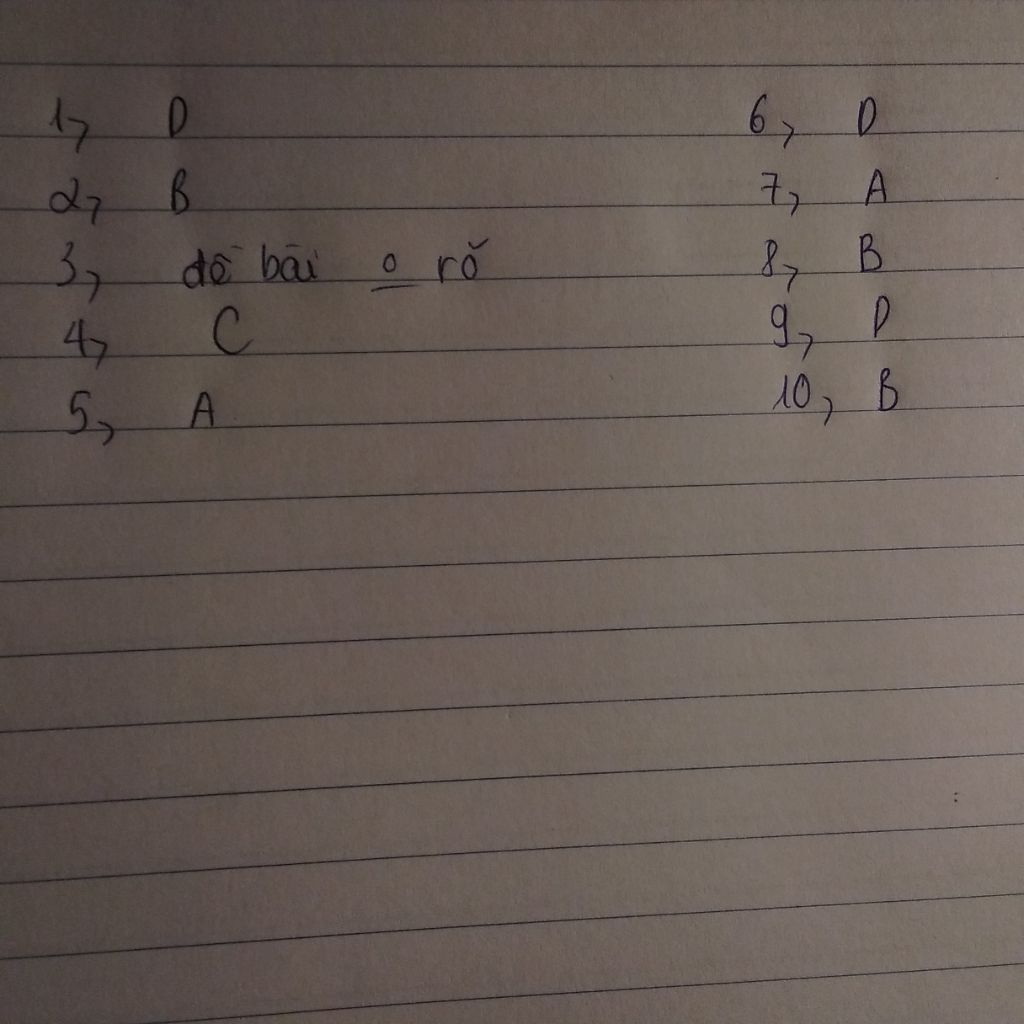 1, D
2, B
3, đề bài o rõ
4, C
5, A
6, D
7, A
8, B
9, D
10, B